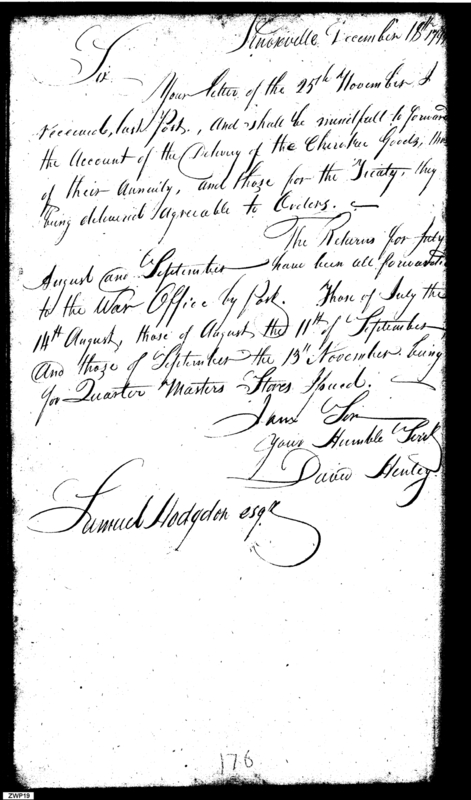 Knoxville December 18th
Sir
Your letter of the 25th November I
received, last Post, And shall be mindfull to forward
the Account of the Delivery of the Cherokee Goods, those
of their Annuity, and those for the Treaty, they
being delivered agreable to Orders.
The Returns for July
August and September have been all forwarded
to the War Office by Post. Those of July the
14th August, those of August the 11th of September
And those of September the 13th November being
for Quarter Masters Stores Issued.
I am Sir
Your Humble Servt
David Henley
Samuel Hodgdon esqr
176
ZWP19